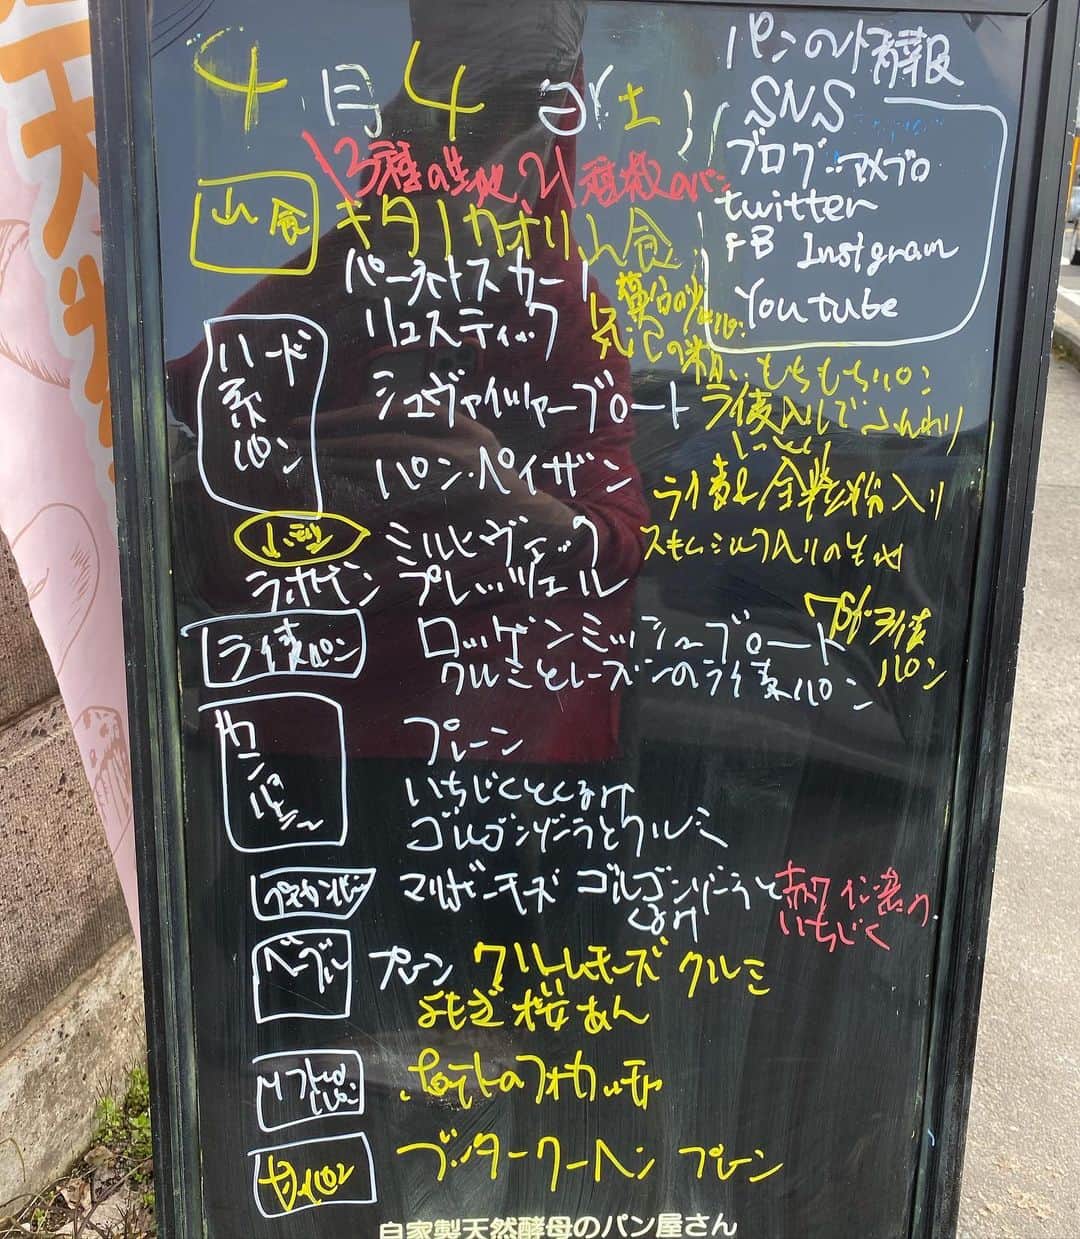 4月4日(土)
パンの情報
SNS
ブログ:アメブロ
twitter
FB Instgram
Youtube
3種の生地、21種類のパン
山食
キタノカオリ山食
ハード系パン
リュスティック
もちもちパン
シュヴァイツァーブロート
ライ麦入りでふんわりしっとり
パン・ペイザン
ライ麦&全粒粉入り
ミルヒヴェック
スキムミルク入りの生地
プレッツェル
ライ麦パン
ロッゲンミッシュブロート
ライ麦パン
クルミとレーズンのライ麦パン
カンパーニュ
プレーン
いちじくとくるみ
ゴルゴンゾーラとクルミ
ゴルゴンゾーラとくるみ
赤ワイン漬けいちじく
ベーグル
プレーン
クルミ
よもぎ桜あん
ポテトのフォカッチャ
甘いパン
ブッタークーヘン プレーン
自家製天然酵母のパン屋さん